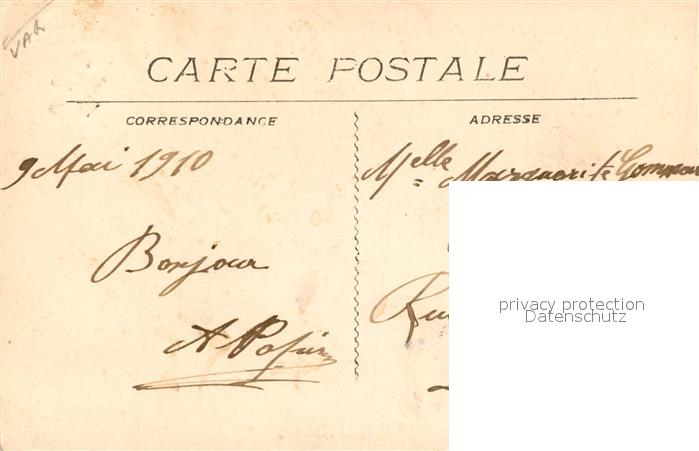 VAR
CARTE POSTALE
CORRESPONDANCE
9 Mai 1910
Bonjour
ADRESSE
Melle Marguerite
privacy protection
Datenschutz